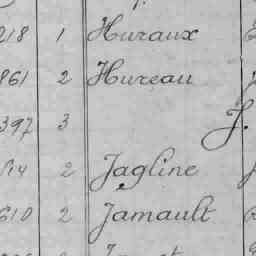 218 1 Huraux
861 2 Hureau
397 3 J.
514 2 Jagline
610 2 Jamault